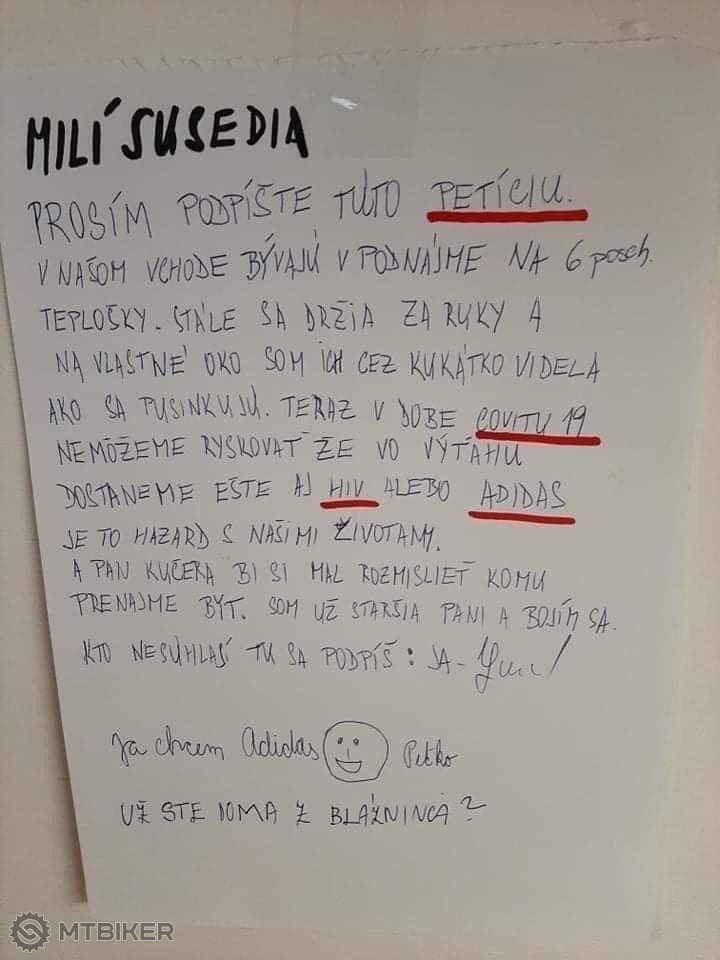 MILÍ SUSEDIA
PROSÍM PODPÍŠTE TÚTO PETÍCIU.
V NAŠOM VCHODE BÝVAJÚ V PODNÁJME NA 6 posch.
TEPLOŠKY. STÁLE SA DRŽIA ZA RUKY A
NA VLASTNÉ OKO SOM ICH CEZ KUKÁTKO VIDELA
AKO SA PUSINKUJÚ. TERAZ V DOBE COVITU 19
NEMÔŽEME RYSKOVAŤ ŽE VO VÝŤAHU
DOSTANEME EŠTE AJ HIV ALEBO ADIDAS
JE TO HAZARD S NAŠIMI ŽIVOTAMY.
A PAN KUČERA BI SI MAL ROZMISLIEŤ KOMU
PRENAJME BYT. SOM UŽ STARŠIA PANI A BOJÍM SA.
KTO NESÚHLASÍ TU SA PODPÍŠ: JA -
Ja chcem Adidas Peťko
UŽ STE DOMA Z BLÁZNINCA?
MTBIKER